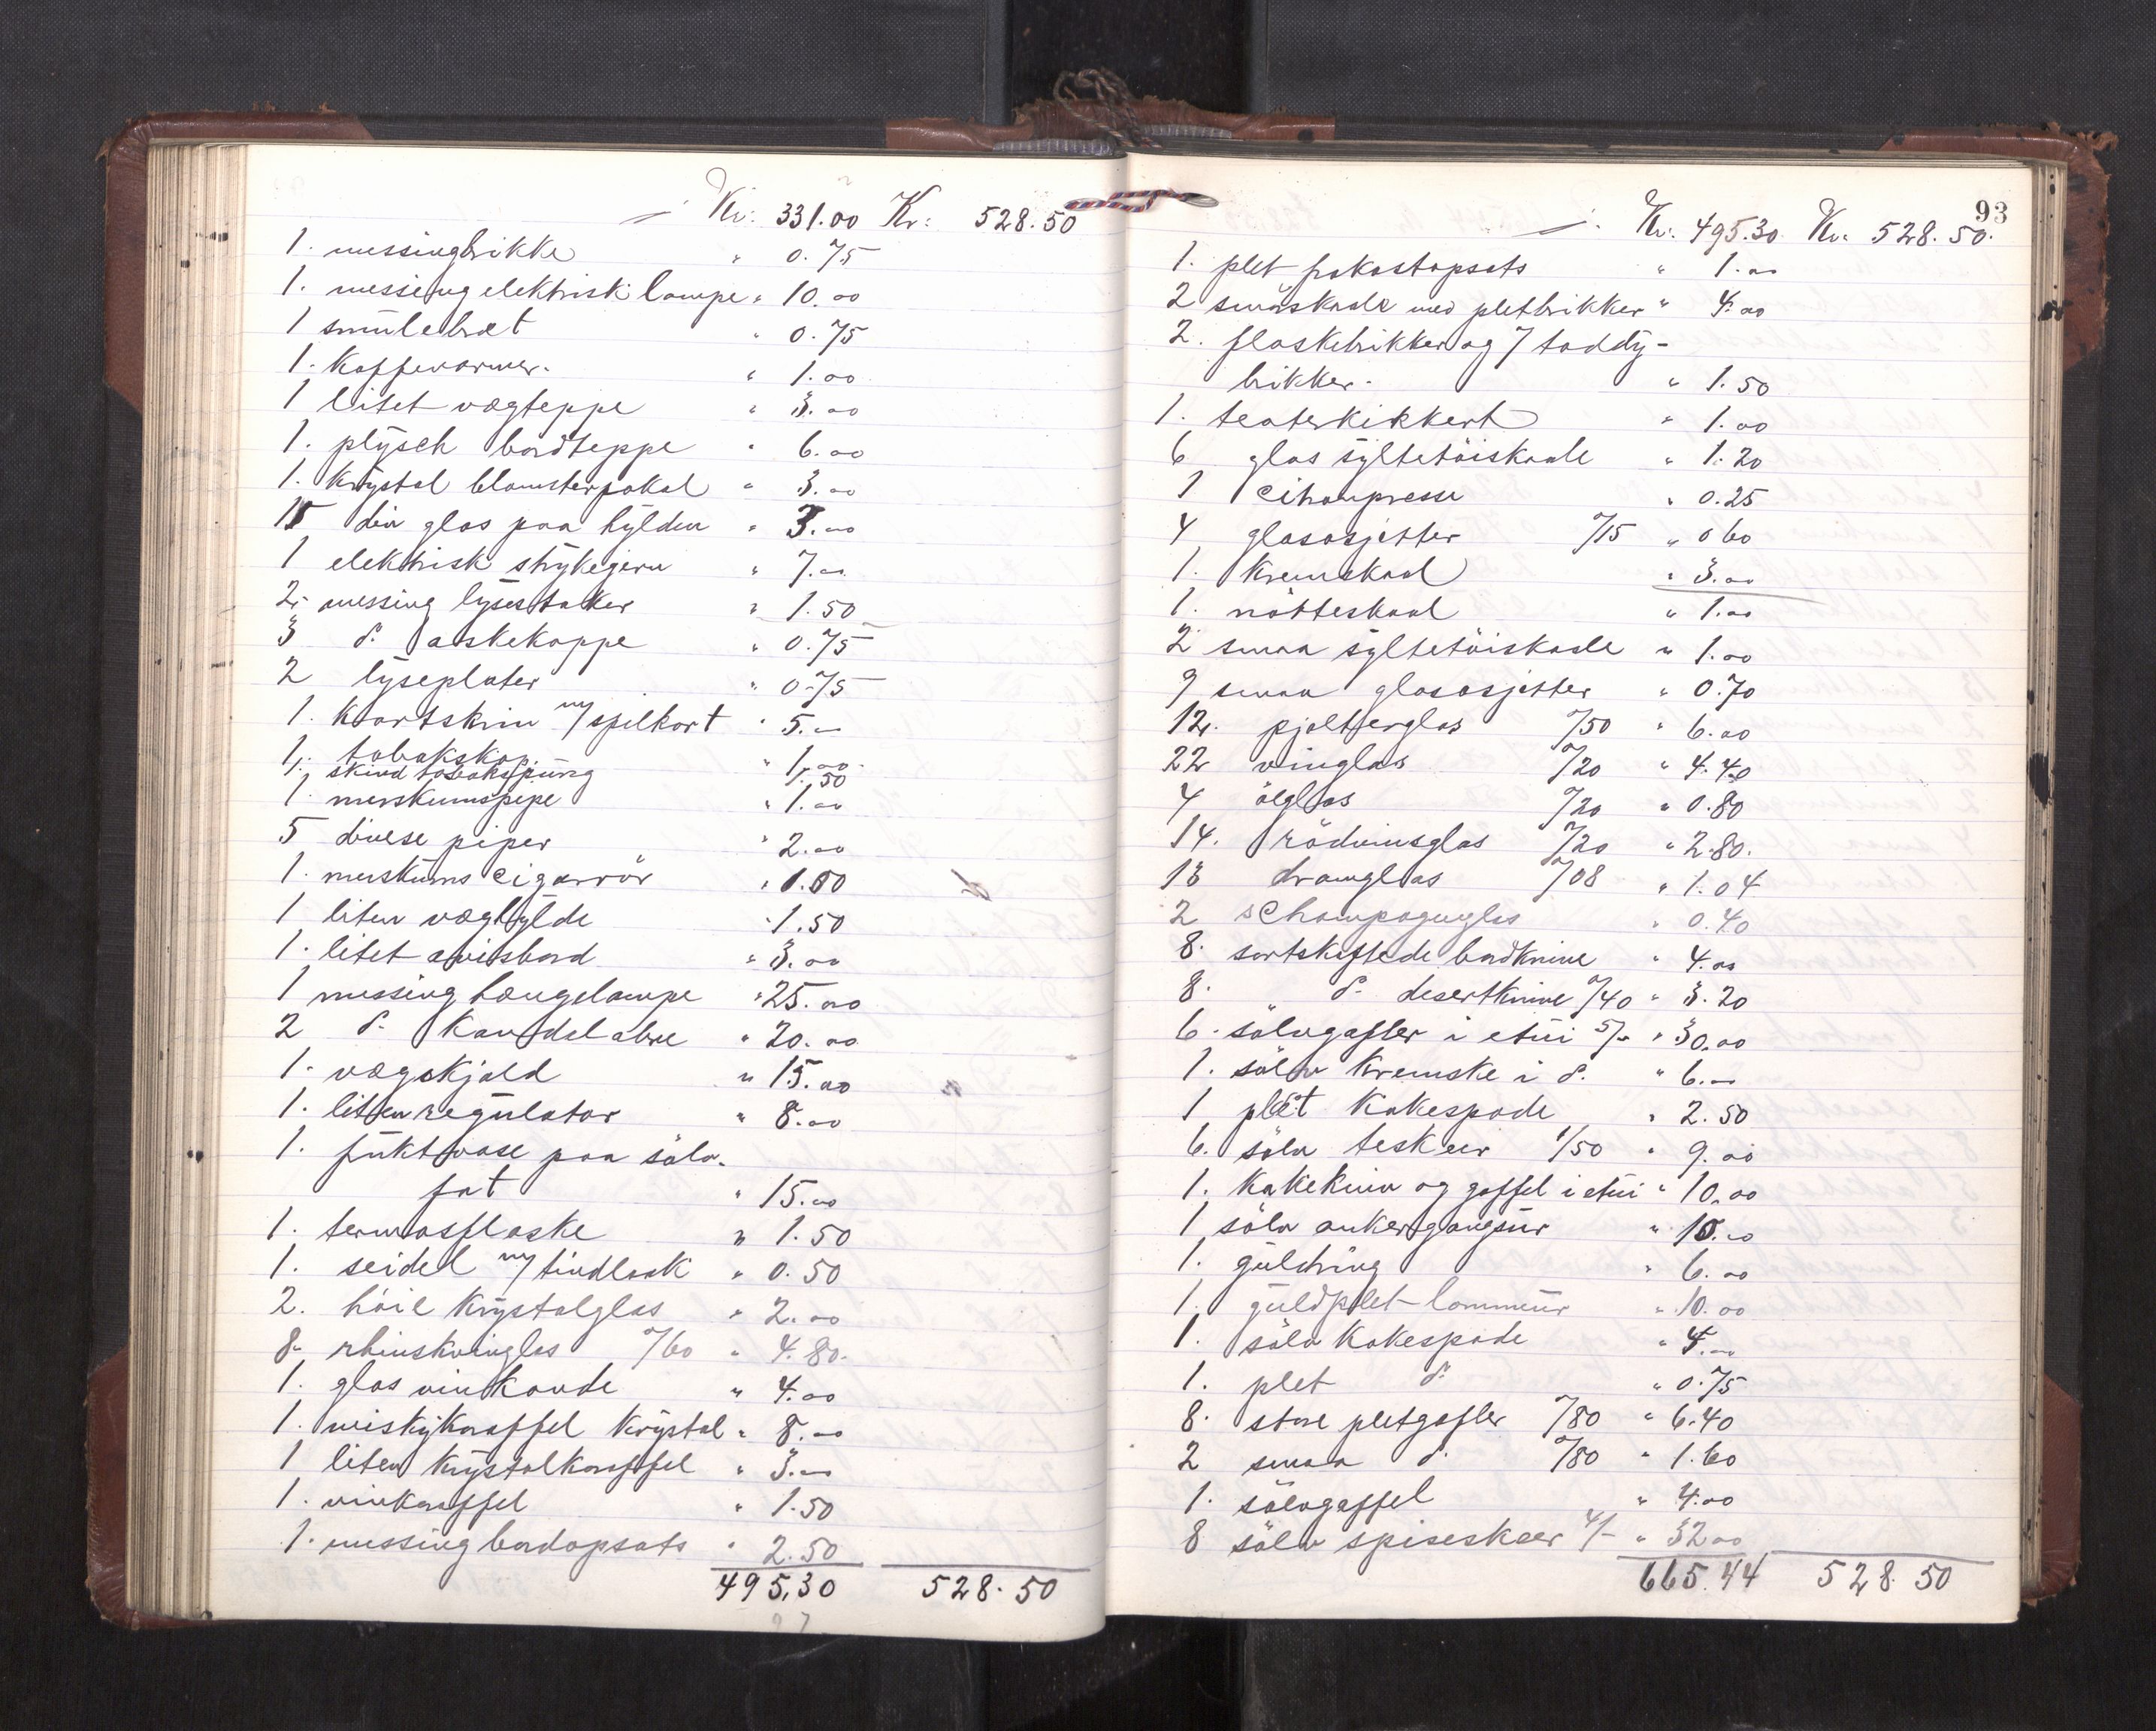 Kr: 331.00 Kr: 528.50
1. messingbrikke " 0.75
1. messing elektrisk lampe " 10.00
1 smulebræt " 0.75
1. Kaffevarmer. " 1.00
1 litet vægteppe " 3.00
1. plysch bordteppe " 6.00
1. Krystal blomsterpokal " 3.00
15 div glas paa hylden " 3.00
1 elektrisk strykejern " 7.00
2. messing lysestaker " 1.50
3 d. askekoppe " 0.75
2 lyseplater " 0.75
1. Kortskrin m/spilkort " 5.00
1. tobakskop " 1.00
1. skind tobakspung 1.50
1. merskumspipe " 1.00
5 diverse piper " 2.00
1. merskums cigarrör " 1.00
1 liten væghylde " 1.50
1. litet avisbord " 3.00
1 messing hængelampe " 25.00
2 d. Kandelabre " 20.00
1. vægskjold " 15.00
1. liten regulator " 8.00
1. fruktvase paa sölv-
fat " 15.00
1. termosflaske " 1.50
1. seidel m/tindlaak " 0.50
2. höie Krystalglas " 2.00
8. rhinskvinglas "/60 " 4.80.
1. glas vinkande " 4.00
1. wiskykaraffel Krystal " 8.00
1 liten Krystalkaraffel " 3.00
1. vinkaraffel " 1.50
1. messing bordopsats " 2.50
495.30 528.50
93
Kr. 495.30 Kr. 528.50.
1. plet frokostopsats " 1.00
2 smaaskaale med pletbrikker " 4.00
2. flaskebrikker og 7 toddy-
brikker. " 1.50
1. teaterkikkert " 1.00
6 glas syltetöiskaale " 1.20
1 citronpresse " 0.25
4 glasasjetter "/15 " 0 60
1. Kremskaal " 3.00
1. nötteskaal " 1.00
2 smaa syltetöiskaale " 1.00
9 smaa glasasjetter " 0.70
12. pjolterglas "/50 " 6.00
22 vinglas "/20 " 4.40
4 ölglas "/20 " 0.80
14. rödvinsglas "/20 " 2.80.
13 dramglas "/08 " 1.04
2 schampagneglas " 0.40
8. sortskaftede bordknive " 4.00
8. " d. desertknive "/40 " 3.20
6. sölvgafler i etui 5/- " 30.00
1. sölv Kremske i d. " 6.00
1 plet Kakespade " 2.50
6. sölv teskeer 1/50 " 9.00
1. Kakekniv og gaffel i etui " 10.00
1 sölv ankergangsur " 10.00
1. guldring " 6.00
1. guldplet lommeur " 10.00
1. sölv Kakespade " 4.00
1. plet d. " 0.75
8. store pletgafler "/80 " 6.40
2 smaa d. "/80 " 1.60
1. sölvgaffel " 4.00
8 sölv spiseskeer 4/- " 32 00
665.44 528 50